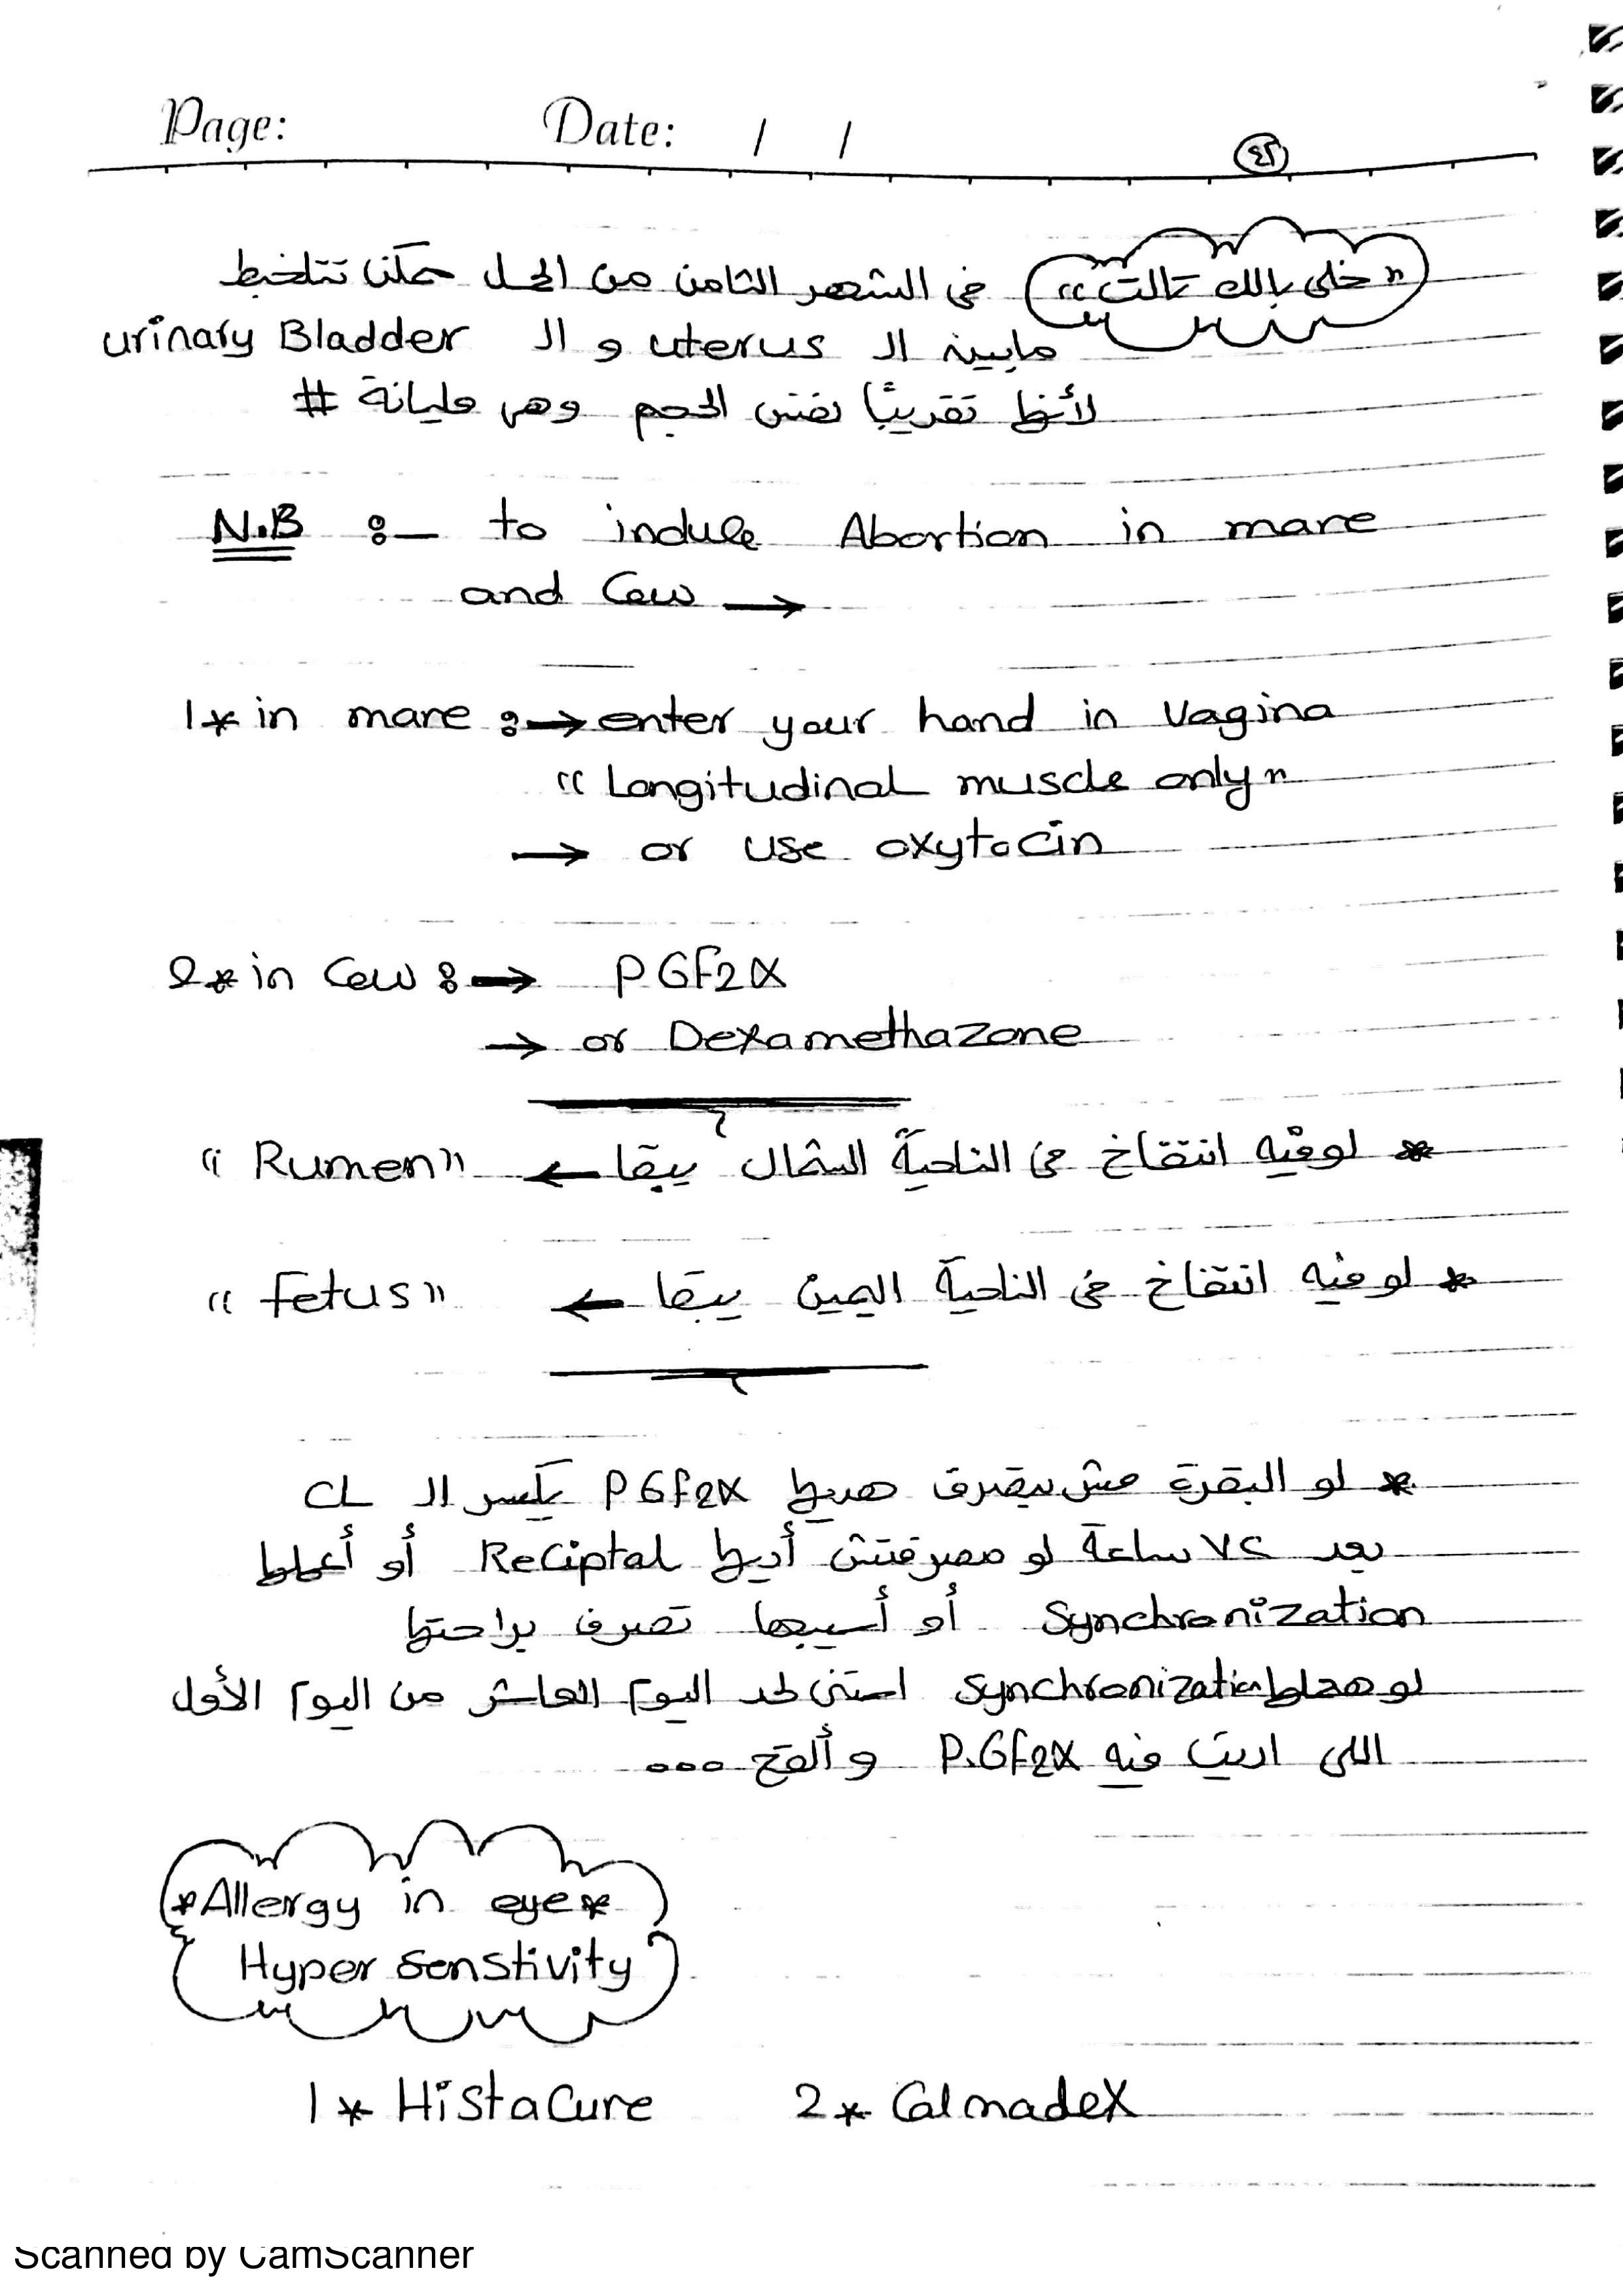 Page: Date: / /
٤٢
"خلى بالك تالت" فى الشهر الثامن من الحمل ممكن تتلخبط
مابين ال uterus و ال urinary Bladder
لأنها تقريبًا نفس الحجم وهى مليانة #
N.B :- to induce Abortion in mare
and Cow →
1* in mare :→ enter your hand in Vagina
"Longitudinal muscle only"
→ or use oxytocin
2* in Cow :→ PGF2α
→ or Dexamethazone
* لو فيه انتفاخ فى الناحية الشمال يبقا ← "Rumen"
* لو فيه انتفاخ فى الناحية اليمين يبقا ← "Fetus"
* لو البقرة مش بتصرف هديها PGF2α يكسر ال CL
بعد ٧٢ ساعة لو مصرفتش أديها Receptal أو أعملها
Synchronization أو أسيبها تصرف براحتها
لو هعملها Synchronization استنى لحد اليوم العاشر من اليوم الأول
اللى اديت فيه P.GF2α و ألقح ...
*Allergy in eye*
Hyper senstivity
1* HistaCure 2* Calmadex
Scanned by CamScanner